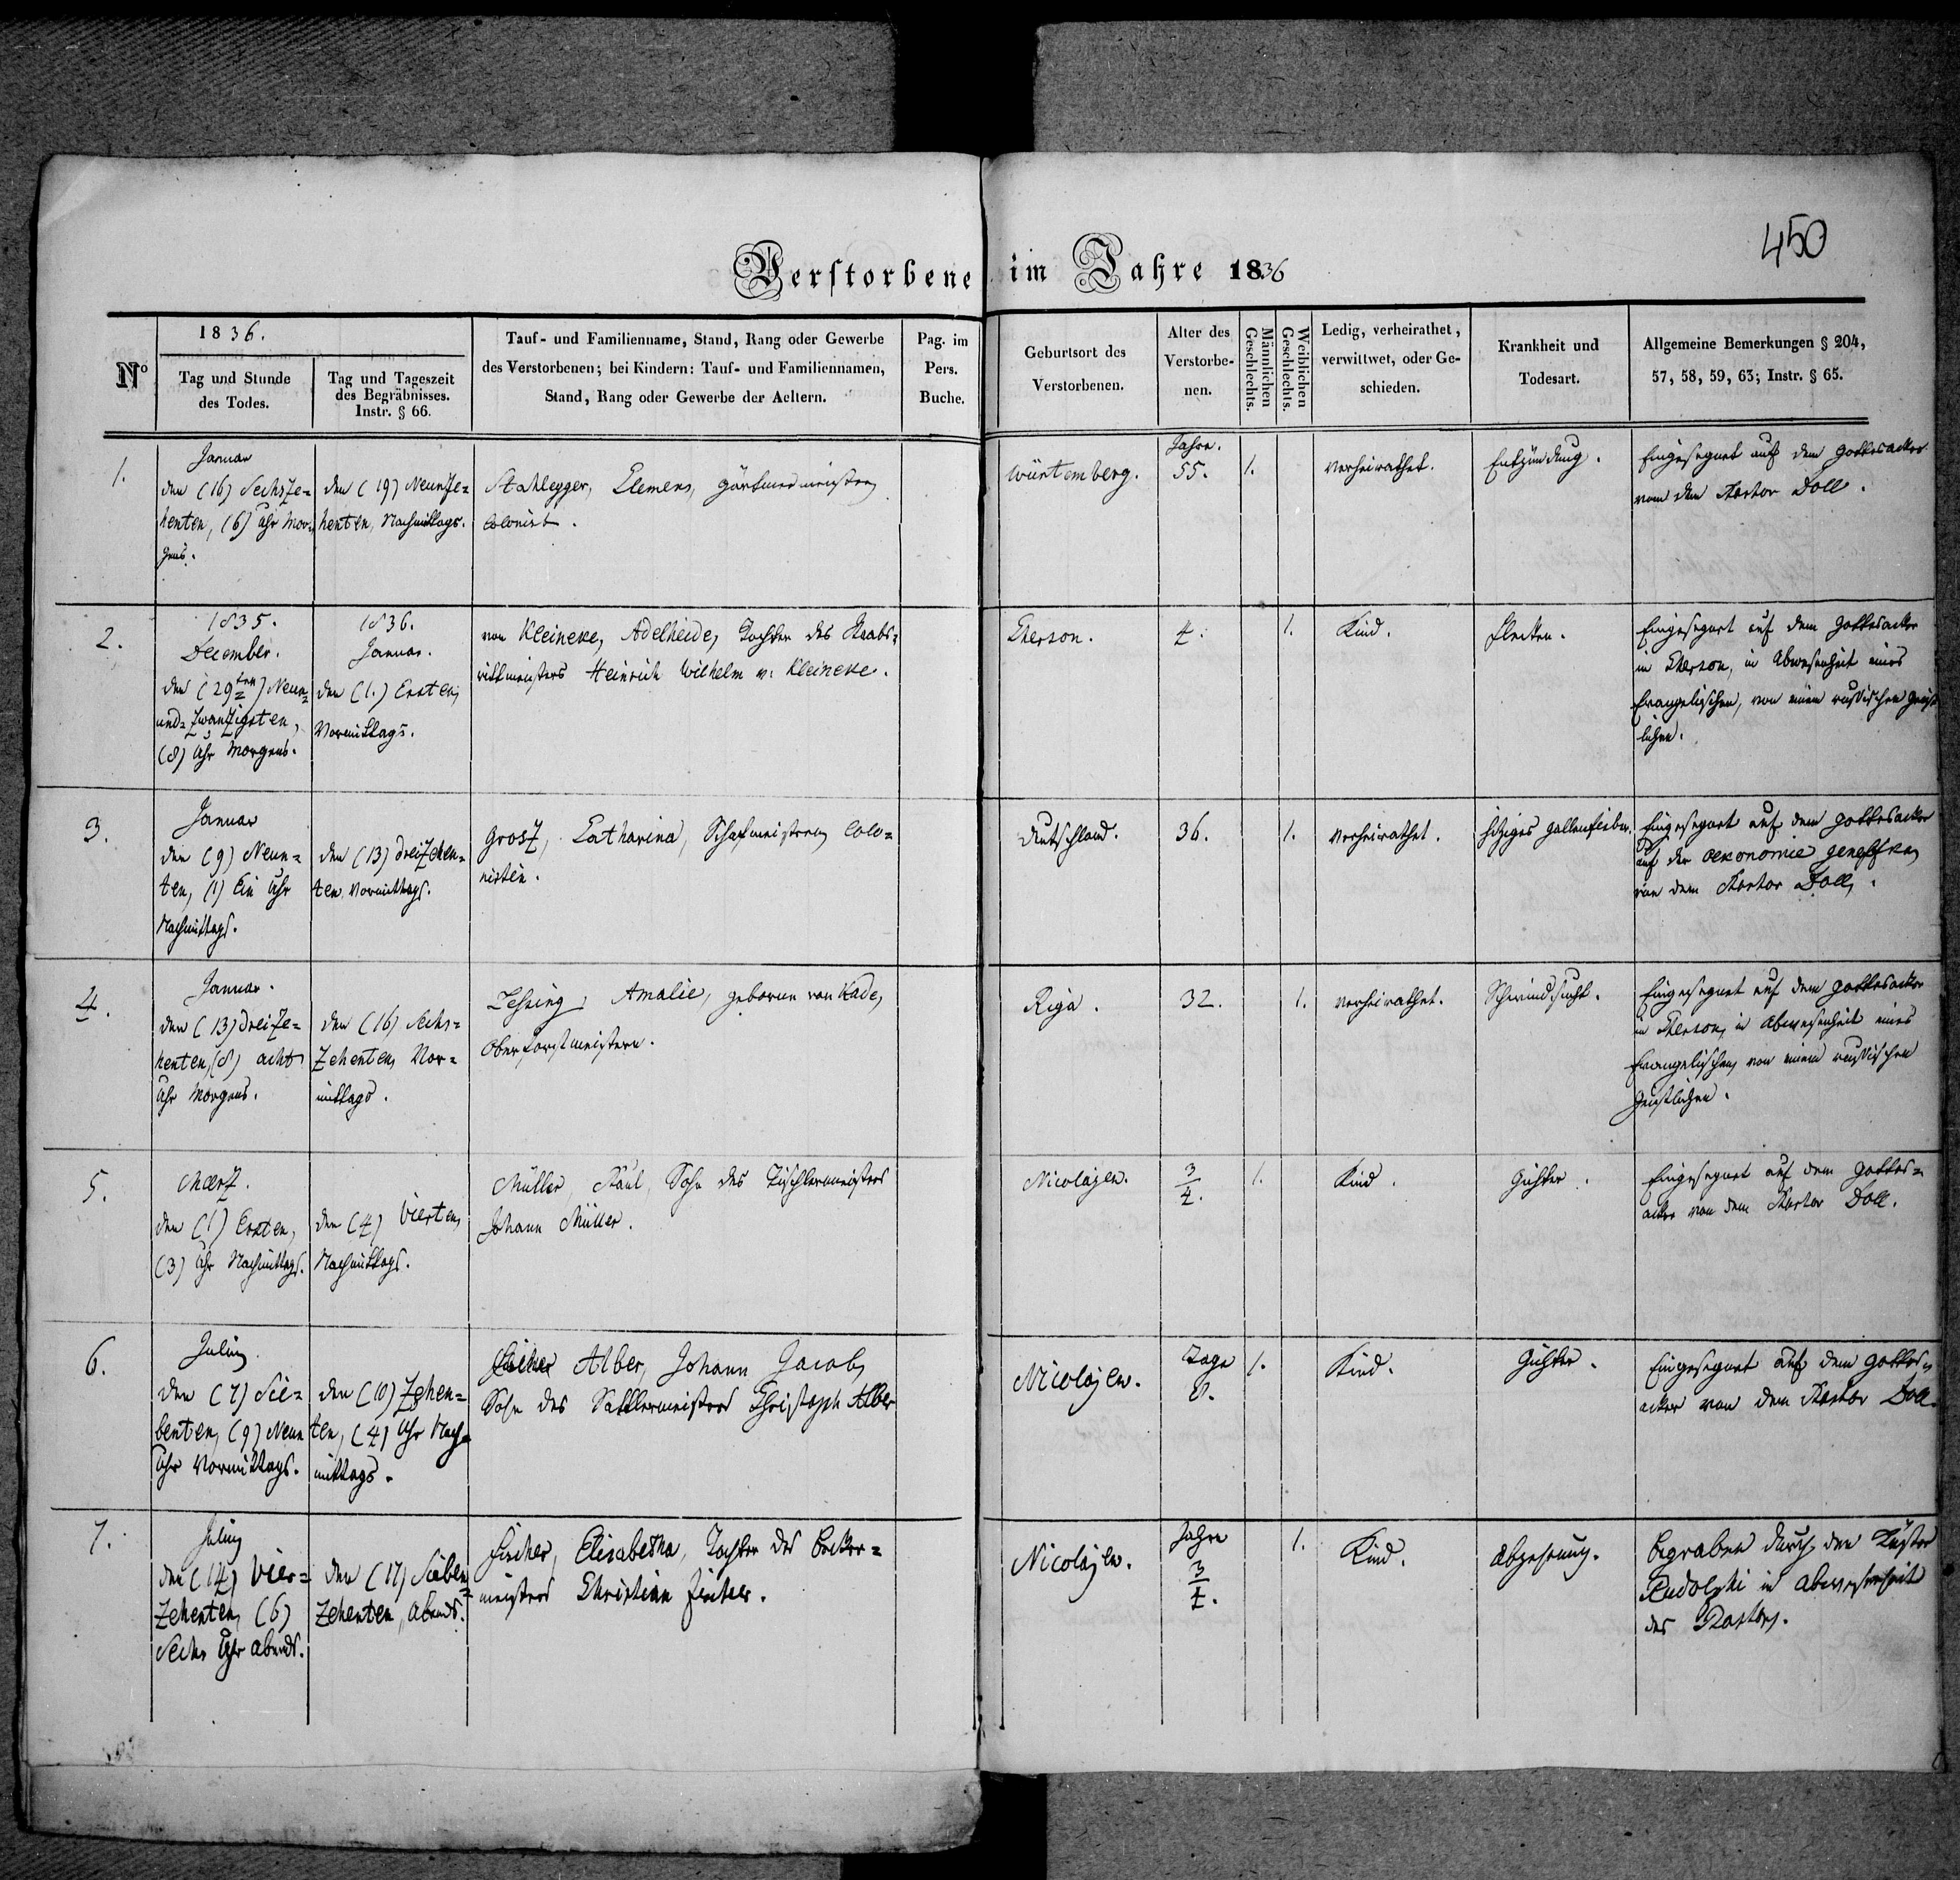 450
Verstorbene im Jahre 1836
No
1836.
Tag und Stunde
des Todes.
Tag und Tageszeit
des Begräbnisses.
Instr. § 66.
Tauf- und Familienname, Stand, Rang oder Gewerbe
des Verstorbenen; bei Kindern: Tauf- und Familiennamen,
Stand, Rang oder Gewerbe der Aeltern.
Pag. im
Pers.
Buche.
Geburtsort des
Verstorbenen.
Alter des
Verstorbe-
nen.
Männlichen
Geschlechts.
Weiblichen
Geschlechts.
Ledig, verheirathet,
verwittwet, oder Ge-
schieden.
Krankheit und
Todesart.
Allgemeine Bemerkungen § 204,
57, 58, 59, 63; Instr. § 65.
1.
Januar
den (16) Sechsze=
henten, (6) Uhr Mor=
gens.
den (19) Neunze=
henten, Nachmittags.
Stahlegger, Clemens, Gärtnermeister,
Colonist.
Würtemberg.
Jahre.
55.
1.
verheirathet.
Entzündung.
Eingesegnet auf dem Gottesacker
von dem Pastor Doll.
2.
1835.
December.
den (29ten) Neun=
und=zwanzigsten,
(8) Uhr Morgens.
1836.
Januar.
den (1.) Ersten,
Vormittags.
von Kleineke, Adelheide, Tochter des Staabs=
rittmeisters Heinrich Wilhelm v. Kleineke.
Cherson.
4.
1.
Kind.
Flecken.
Eingesegnet auf dem Gottesacker
in Cherson, in Abwesenheit eines
Evangelischen, von einem russischen Geist
lichen.
3.
Januar
den (9) Neun=
ten, (1) Ein Uhr
Nachmittags.
den (13) dreizehen=
ten Vormittags.
Grosz, Catharina, Schafmeisterin, Colo=
nistin.
Deutschland.
36.
1.
verheirathet.
hitziges Gallenfieber.
Eingesegnet auf dem Gottesacker
auf der Oekonomie
von dem Pastor Doll.
4.
Januar.
den (13) dreize=
henten, (8) acht
Uhr Morgens.
den (16) Sechs=
zehenten, Vor=
mittags.
Zehring, Amalie, geborene von Kade,
Oberforstmeisterin.
Riga.
32.
1.
verheirathet.
Schwindsucht.
Eingesegnet auf dem Gottesacker
in Cherson, in Abwesenheit eines
Evangelischen, von einem russischen
Geistlichen.
5.
Maerz.
den (1) Ersten,
(3) Uhr Nachmittags.
den (4) Vierten,
Nachmittags.
Müller, Paul, Sohn des Tischlermeisters
Johann Müller.
Nicolajew.
3/4.
1.
Kind.
Gichter.
Eingesegnet auf dem Gottes=
acker von dem Pastor Doll.
6.
Julius
den (7) Sie=
benten, (9) Neun
Uhr Vormittags.
den (10) Zehen=
ten, (4) Uhr Nach=
mittags.
Alber, Johann Jacob,
Sohn des Sattlermeisters Christoph Alber
Nicolajew.
Tage
8.
1.
Kind.
Gichter.
Eingesegnet auf dem Gottes=
acker von dem Pastor Doll.
7.
Julius
den (14) Vier=
zehenten, (6)
Sechs Uhr Abends.
den (17) Sieben=
zehenten, Abends.
Fischer, Elisabetha, Tochter des Becker=
meisters Christian Fischer.
Nicolajew.
Jahre
3/4.
1.
Kind.
Abzehrung.
Begraben durch den Küster
Rudolphi in Abwesenheit
des Pastors.